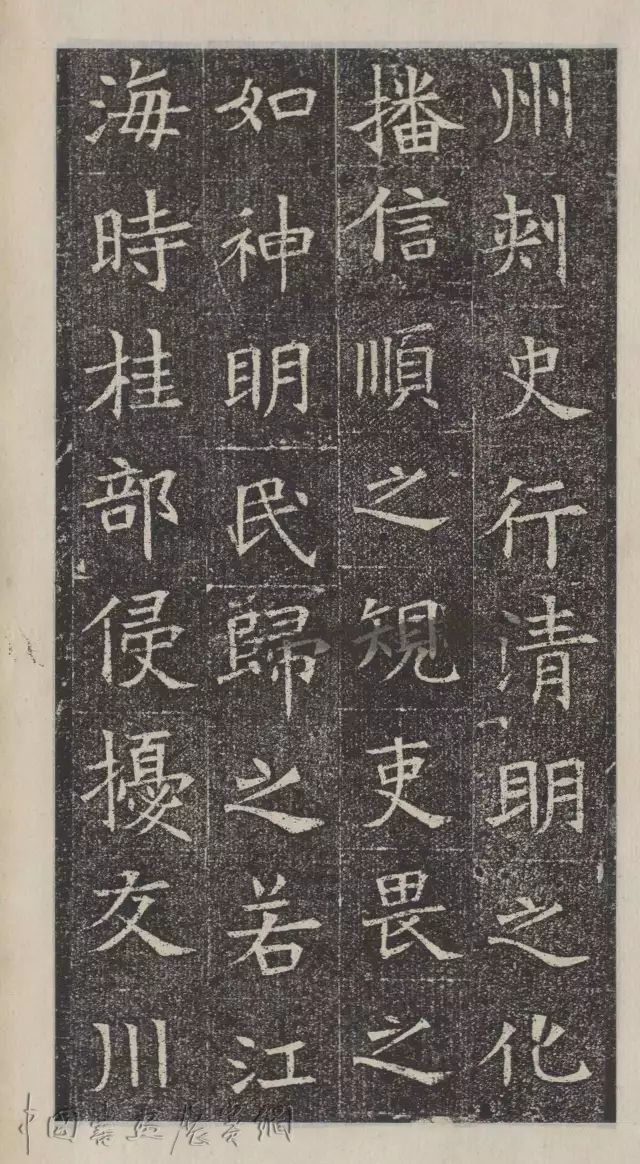 州刺史行清明之化
播信順之規吏畏之
如神明民歸之若江
海時桂部侵擾交川
中国书法展览网